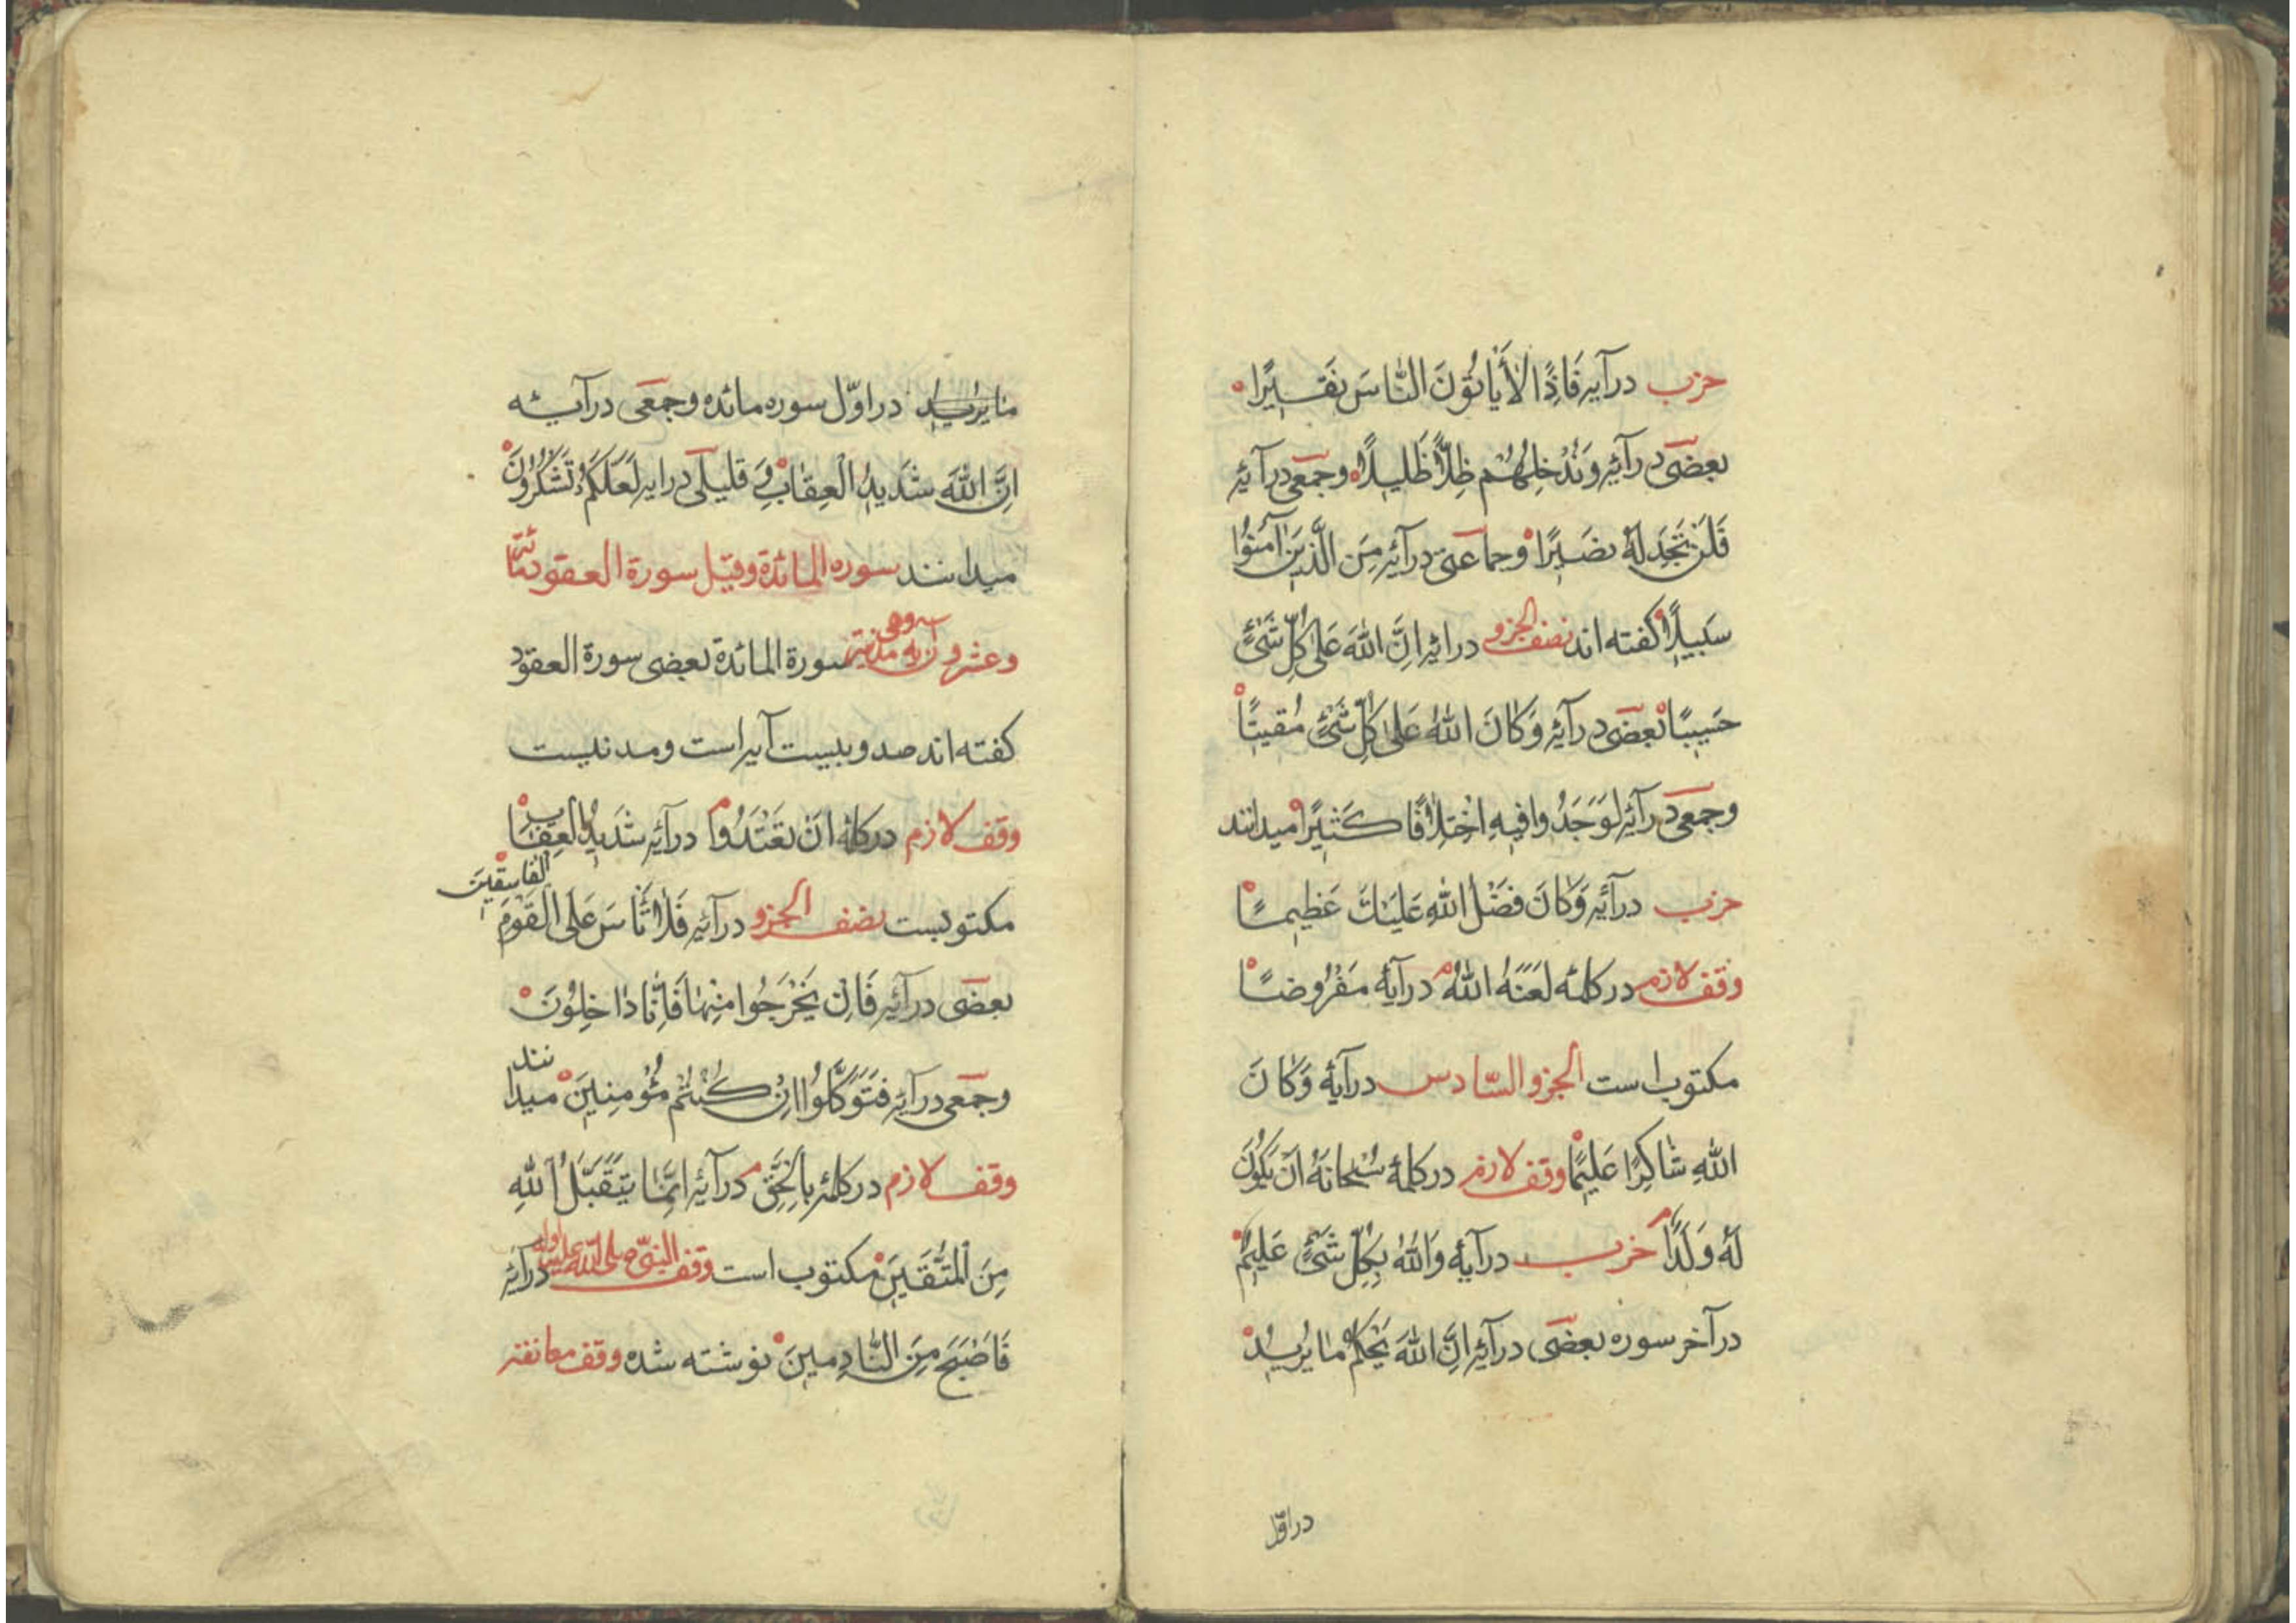 حزب درآیه فَاِذًا لاَیأتُوُنَ النّاسَ نَقیٖرًا
بعضی درآئهٔ وَنُدْخِلُهُم ظِلًّا ظَلیٖلاً وجمعی درآئهٔ
فَلَنْ تَجِدَلَهُ نصَیٖرًا وجماعتی درآئه مِنَ الَّذیٖنَ آمَنوُا
سَبیٖلاً کفته اند نصف الجزو درائه اِنَّ اللّهَ عَلیٰ کُلِّ شَیْئٍ
حَسیٖبًا بعضی درآئهٔ وَکانَ اللّهُ عَلیٰ کُلِّ شَیْئٍ مُقیتًا
وجمعی درآئه لَوَجَدُوافیٖهِ اخْتِلاٰفًا کَثیٖرًا میدانند
حزب درآئهٔ وَکانَ فَضْلُ اللّهِ عَلَیْكَ عَظیٖمًا
وقف لازم درکلمهٔ لَعَنَهُ اللّهُ درآیهٔ مَفْرُوضًا
مکتوب است الجزو السّادس درآیهٔ وَکانَ
اللّهِ شٰاکِرًا عَلیٖمًا وقف لازم درکلمهٔ سُبْحانَهُ اَنْ یَکوُنَ
لَهُ وَلَدًا حزب درآیهٔ وَاللّهُ بِکُلِّ شَیْئٍ عَلیٖمٌ
درآخر سوره بعضی درآئهٔ اِنَّ اللّهَ یَحْکُمُ مٰا یُریٖدُ
دراوّل
مٰا یریٖد دراوّل سوره مائده وجمعی درآیه
اِنَّ اللّهَ شَدیٖدُ الْعِقٰابِ وَ قلیلی درایه لَعَلَکُمْ تَشْکُروُنَ
میدانند سوره المائدة وقیل سورة العقود مائة
وعشرون آیه وهی مدنیة سورة المائدة بعضی سورة العقود
کفته اند صد وبیست آیه است ومدنیست
وقف لازم درکلمهٔ اَنْ تَعْتَدُوا درآئه شَدیٖدُ الْعِقٰابِ
مکتوبست نصف الجزو درآئهٔ فَلاٰ تَأسَ عَلَی الْقَوْمَ الْفاسِقیٖنَ
بعضی درآئهٔ فَاِنْ یَخْرُجُوا مِنْهٰا فَاِنّٰا دٰاخِلُونَ
وجمعی درآئه فَتَوَکَّلُوُا اِنْ کُنْتُم مُؤْمِنیٖنَ میدانند
وقف لازم درکلمهٔ بالْحَقِّ درآئهٔ اِنَّمٰا یَتَقَبَّلُ اللّهِ
مِنَ الْمُتَّقیٖنَ مکتوب است وقف النبیّ صلی اللّه علیه واله درآئه
فَاَصْبَحَ مِنَ النّٰادِمیٖنَ نوشته شده وقف معانقه